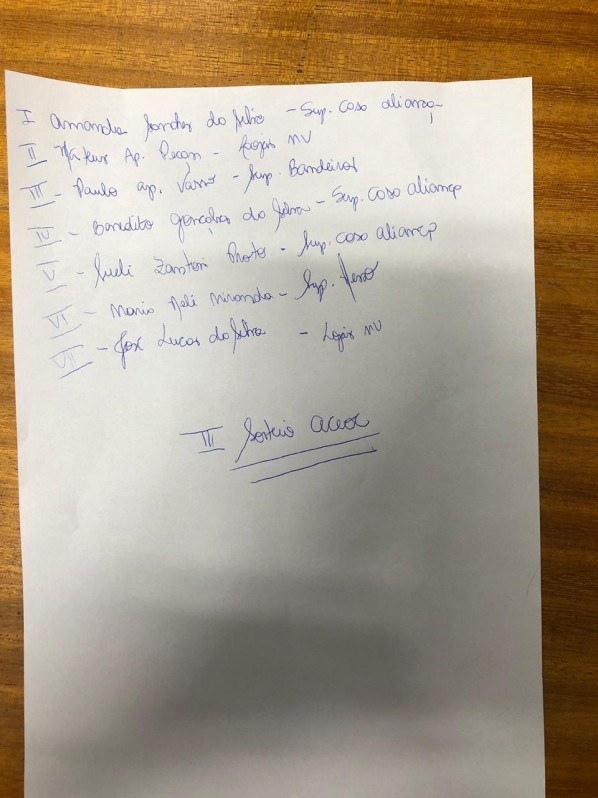 I Amanda Sanches da Silva - Sup. Casa aliança
II Mateus Ap. - Lojas MV
III - Paulo ap. - Sup. Bandeiras
IV - Benedito Gonçalves da Silva - Sup. Casa aliança
V - Sueli Zantori Proto - Sup. Casa aliança
VI - Maria Neli Miranda - Sup.
VII - José Lucas da Silva - Lojas MV
III Sorteio